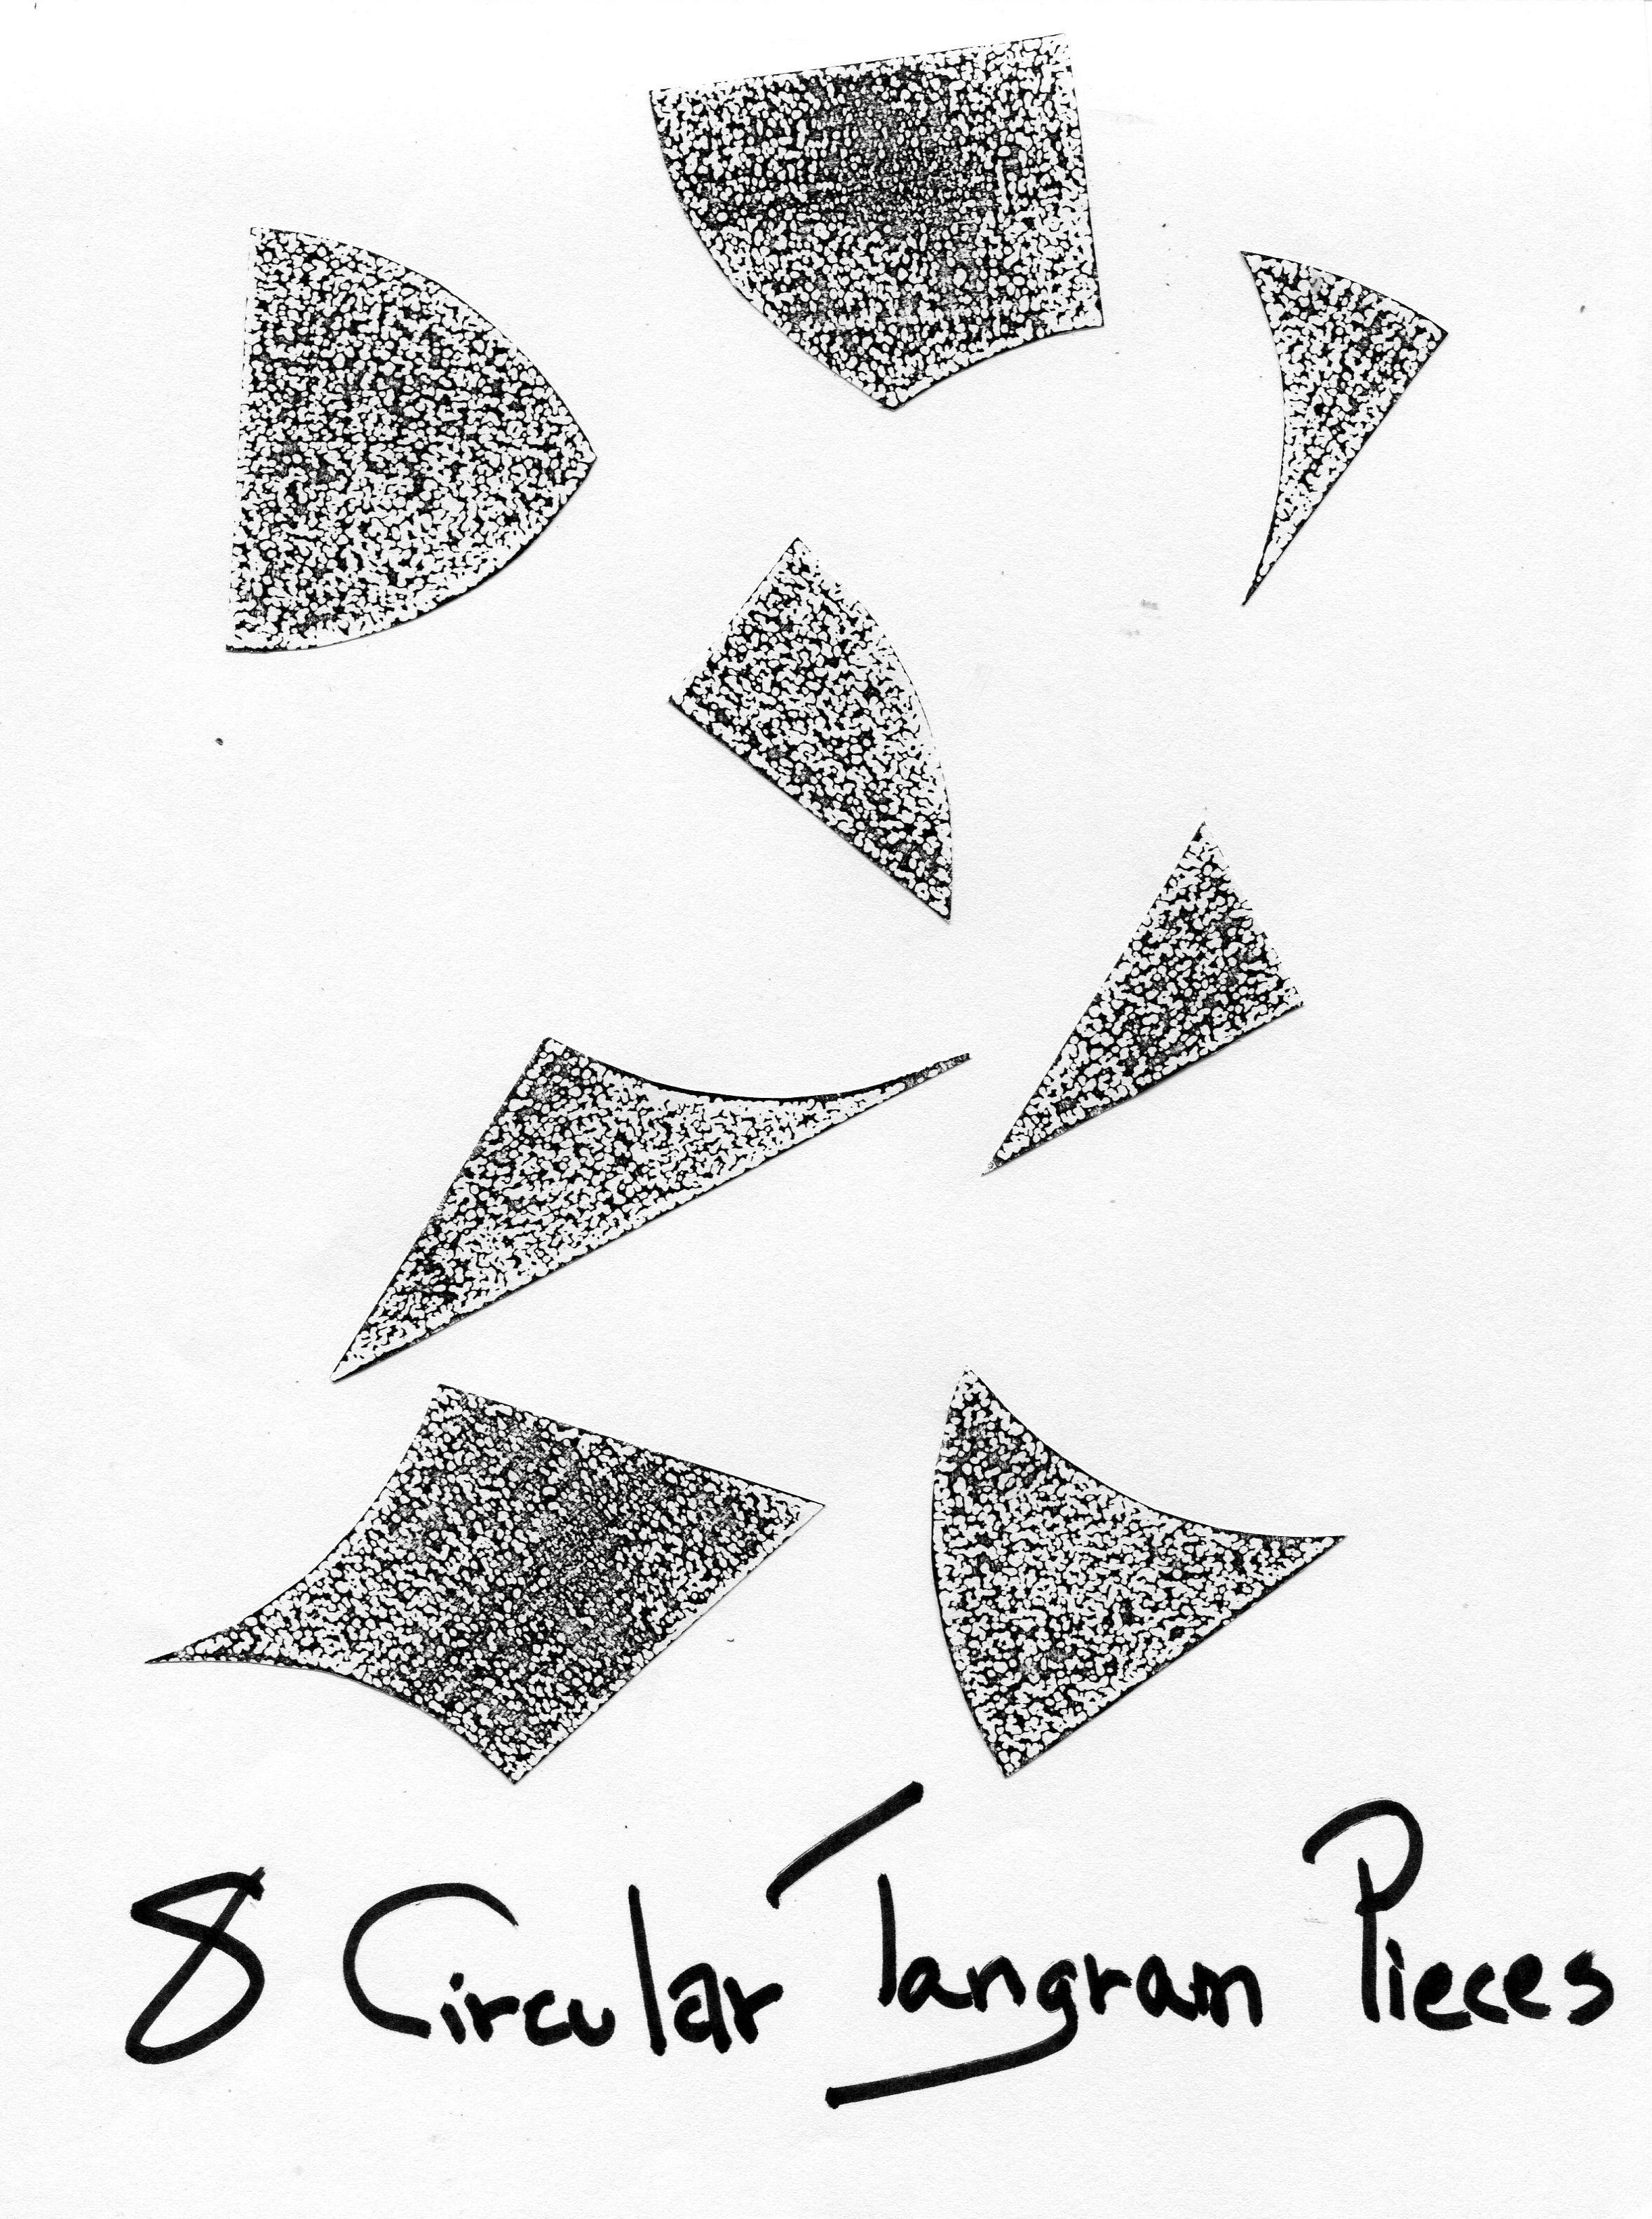 8 Circular Tangram Pieces